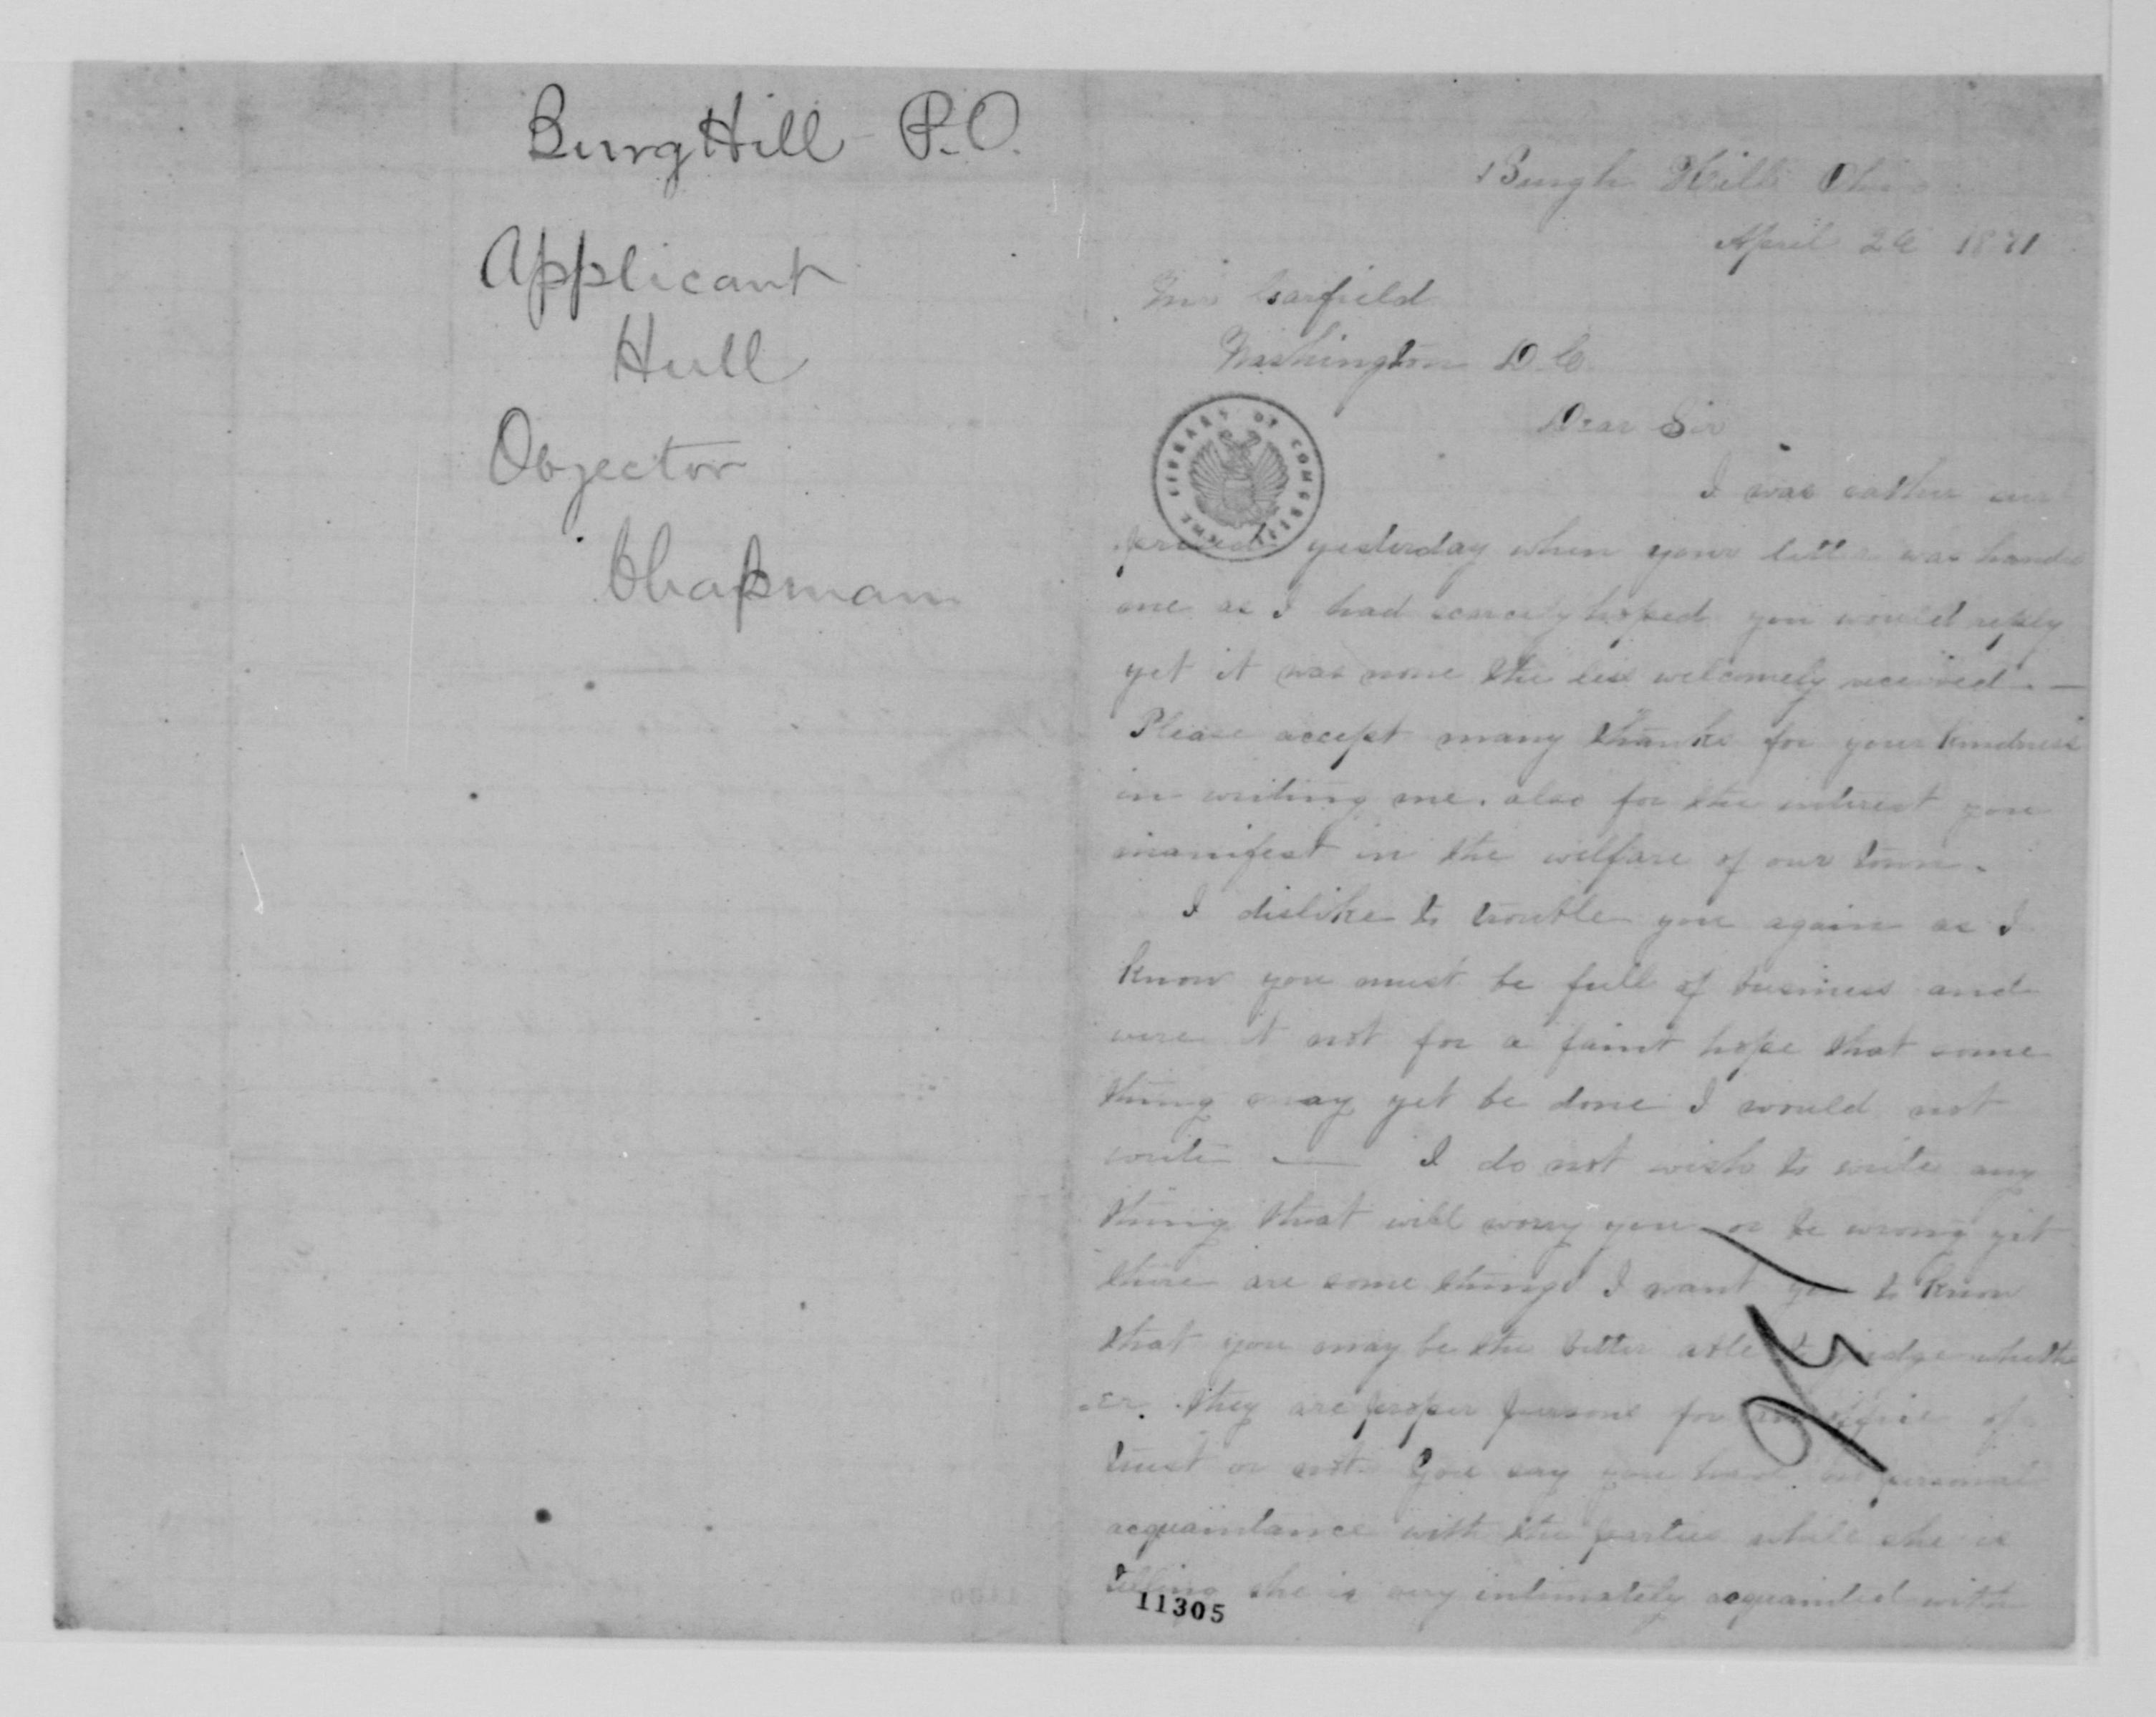 Burg Hill P.O.
Applicant
Hull
Objector
Chapman
Burgh Hill Ohio
April 26 1871
Mr Garfield
Washington D.C.
Dear Sir
I was rather sur
prised yesterday when your letter was handed
me as I had scarcely hoped you would reply
yet it was none the less welcomely received. —
Please accept many thanks for your kindness
in writing me. also for the interest you
manifest in the welfare of our town.
I dislike to trouble you again as I
know you must be full of business and
were it not for a faint hope that some
thing may yet be done I would not
write — I do not wish to write any
thing that will worry you or be wrong yet
there are some things I want you to know
that you may be the better able to judge wheth
er. they are proper persons for an office of
trust or not. You say you have no personal
acquaintance with the parties while she is
telling she is very intimately acquainted with
11305
THE LIBRARY OF CONGRESS